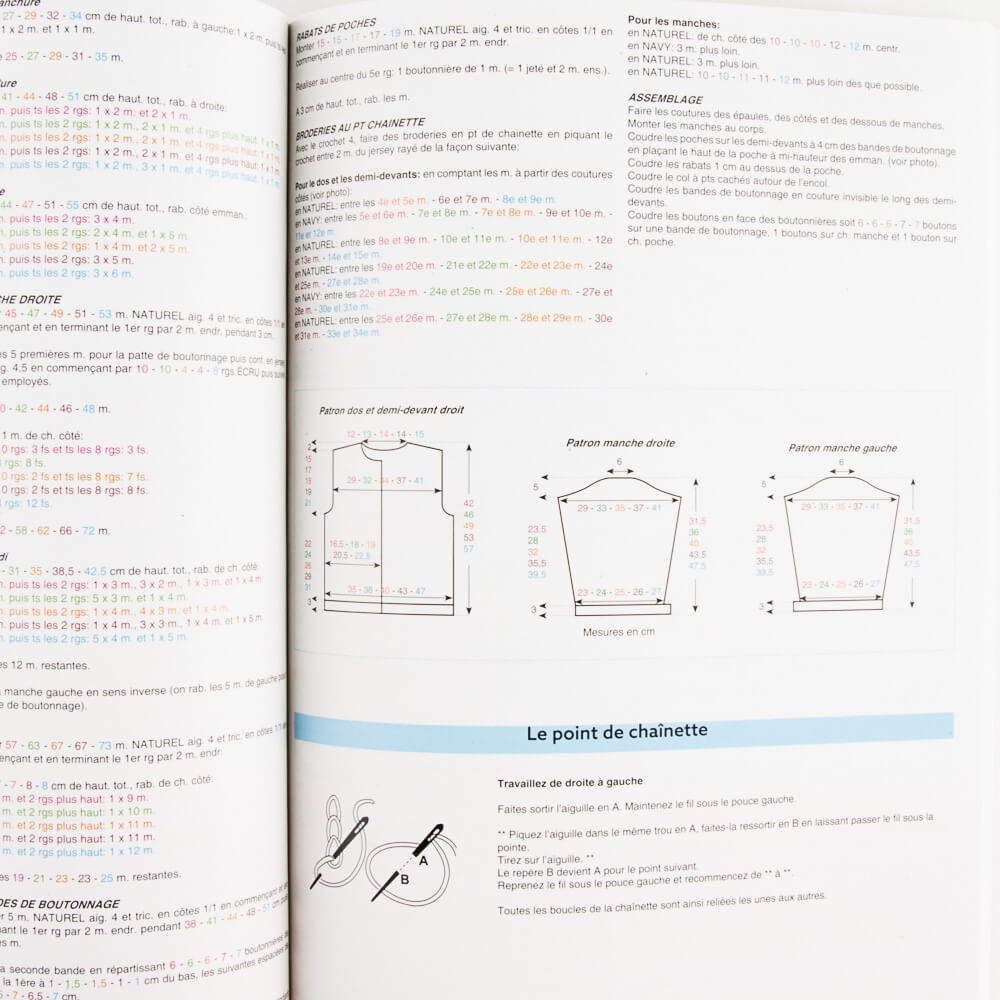 27 - 29 - 32 - 34 cm de haut. tot., rab. à gauche:1 x 2 m. puis ts les
1 x 2 m. et 1 x 1 m.
25 - 27 - 29 - 31 - 35 m.
41 - 44 - 48 - 51 cm de haut. tot., rab. à droite:
m. puis ts les 2 rgs: 1 x 2 m. et 2 x 1 m.
m. puis ts les 2 rgs: 1 x 2 m., 2 x 1 m. et 4 rgs plus haut: 1 x 1 m.
m. puis ts les 2 rgs: 1 x 2 m., 2 x 1 m. et 4 rgs plus haut: 1 x 1 m.
m. puis ts les 2 rgs: 1 x 2 m., 2 x 1 m. et 4 rgs plus haut: 1 x 1 m.
m. puis ts les 2 rgs: 1 x 2 m., 3 x 1 m. et 4 rgs plus haut: 1 x 1 m.
44 - 47 - 51 - 55 cm de haut. tot., rab. côté emman.:
m. puis ts les 2 rgs: 3 x 4 m.
m. puis ts les 2 rgs: 2 x 4 m. et 1 x 5 m.
m. puis ts les 2 rgs: 1 x 4 m. et 2 x 5 m.
m. puis ts les 2 rgs: 3 x 5 m.
m. puis ts les 2 rgs: 3 x 6 m.
CHE DROITE
45 - 47 - 49 - 51 - 53 m. NATUREL aig. 4 et tric. en côtes 1/1 en
ençant et en terminant le 1er rg par 2 m. endr. pendant 3 cm.
es 5 premières m. pour la patte de boutonnage puis cont. en jersey
g. 4,5 en commençant par 10 - 10 - 4 - 4 - 8 rgs ÉCRU puis
employés.
0 - 42 - 44 - 46 - 48 m.
1 m. de ch. côté:
0 rgs: 3 fs et ts les 8 rgs: 3 fs.
rgs: 8 fs.
0 rgs: 2 fs et ts les 8 rgs: 7 fs.
0 rgs: 2 fs et ts les 8 rgs: 8 fs.
rgs: 12 fs.
2 - 58 - 62 - 66 - 72 m.
di
- 31 - 35 - 38,5 - 42,5 cm de haut. tot., rab. de ch. côté:
m. puis ts les 2 rgs: 1 x 3 m., 3 x 2 m., 1 x 3 m. et 1 x 4 m.
m. puis ts les 2 rgs: 5 x 3 m. et 1 x 4 m.
m. puis ts les 2 rgs: 1 x 4 m., 4 x 3 m. et 1 x 4 m.
m. puis ts les 2 rgs: 1 x 4 m., 3 x 3 m., 1 x 4 m. et 1 x 5 m.
m. puis ts les 2 rgs: 5 x 4 m. et 1 x 5 m.
es 12 m. restantes.
manche gauche en sens inverse (on rab. les 5 m. de gauche pour
e de boutonnage).
57 - 63 - 67 - 67 - 73 m. NATUREL aig. 4 et tric. en côtes 1/1 en
ençant et en terminant le 1er rg par 2 m. endr.
- 7 - 8 - 8 cm de haut. tot., rab. de ch. côté:
m. et 2 rgs plus haut: 1 x 9 m.
m. et 2 rgs plus haut: 1 x 10 m.
m. et 2 rgs plus haut: 1 x 11 m.
m. et 2 rgs plus haut: 1 x 11 m.
m. et 2 rgs plus haut: 1 x 12 m.
es 19 - 21 - 23 - 23 - 25 m. restantes.
DES DE BOUTONNAGE
r 5 m. NATUREL aig. 4 et tric. en côtes 1/1 en commençant et en
ant le 1er rg par 2 m. endr. pendant 38 - 41 - 44 - 48 - 51 cm puis
s m.
a seconde bande en répartissant 6 - 6 - 6 - 7 - 7 boutonnières
la 1ère à 1 - 1,5 - 1,5 - 1 - 1 cm du bas, les suivantes espacées
- 7 - 6,5 - 7 cm.
RABATS DE POCHES
Monter 15 - 15 - 17 - 17 - 19 m. NATUREL aig. 4 et tric. en côtes 1/1 en
commençant et en terminant le 1er rg par 2 m. endr.
Réaliser au centre du 5e rg: 1 boutonnière de 1 m. (= 1 jeté et 2 m. ens.).
A 3 cm de haut. tot., rab. les m.
BRODERIES AU PT CHAINETTE
Avec le crochet 4, faire des broderies en pt de chainette en piquant le
crochet entre 2 m. du jersey rayé de la façon suivante:
Pour le dos et les demi-devants: en comptant les m. à partir des coutures
côtés (voir photo):
en NATUREL: entre les 4e et 5e m. - 6e et 7e m. - 8e et 9e m.
en NAVY: entre les 5e et 6e m. - 7e et 8e m. - 7e et 8e m. - 9e et 10e m. -
11e et 12e m.
en NATUREL: entre les 8e et 9e m. - 10e et 11e m. - 10e et 11e m. - 12e
et 13e m. - 14e et 15e m.
en NATUREL: entre les 19e et 20e m. - 21e et 22e m. - 22e et 23e m. - 24e
et 25e m. - 27e et 28e m.
en NAVY: entre les 22e et 23e m. - 24e et 25e m. - 25e et 26e m. - 27e et
28e m. - 30e et 31e m.
en NATUREL: entre les 25e et 26e m. - 27e et 28e m. - 28e et 29e m. - 30e
et 31e m. - 33e et 34e m.
Pour les manches:
en NATUREL: de ch. côté des 10 - 10 - 10 - 12 - 12 m. centr.
en NAVY: 3 m. plus loin.
en NATUREL: 3 m. plus loin.
en NATUREL: 10 - 10 - 11 - 11 - 12 m. plus loin dès que possible.
ASSEMBLAGE
Faire les coutures des épaules, des côtés et des dessous de manches.
Monter les manches au corps.
Coudre les poches sur les demi-devants à 4 cm des bandes de boutonnage
en plaçant le haut de la poche à mi-hauteur des emman. (voir photo).
Coudre les rabats 1 cm au dessus de la poche.
Coudre le col à pts cachés autour de l'encol.
Coudre les bandes de boutonnage en couture invisible le long des demi-
devants.
Coudre les boutons en face des boutonnières soit 6 - 6 - 6 - 7 - 7 boutons
sur une bande de boutonnage, 1 boutons sur ch. manche et 1 bouton sur
ch. poche.
Patron dos et demi-devant droit
12 - 13 - 14 - 14 - 15
2
15
17
18
19
21
29 - 32 - 34 - 37 - 41
42
46
49
53
57
22
24
26
29
31
16,5 - 18 - 19
20,5 - 22,5
35 - 38 - 40 - 43 - 47
3
Patron manche droite
6
5
29 - 33 - 35 - 37 - 41
23,5
28
32
35,5
39,5
31,5
36
40
43,5
47,5
23 - 24 - 25 - 26 - 27
3
Mesures en cm
Patron manche gauche
6
5
29 - 33 - 35 - 37 - 41
23,5
28
32
35,5
39,5
31,5
36
40
43,5
47,5
23 - 24 - 25 - 26 - 27
3
Le point de chaînette
A
B
Travaillez de droite à gauche
Faites sortir l'aiguille en A. Maintenez le fil sous le pouce gauche.
** Piquez l'aiguille dans le même trou en A, faites-la ressortir en B en laissant passer le fil sous la
pointe.
Tirez sur l'aiguille. **
Le repère B devient A pour le point suivant.
Reprenez le fil sous le pouce gauche et recommencez de ** à **.
Toutes les boucles de la chaînette sont ainsi reliées les unes aux autres.